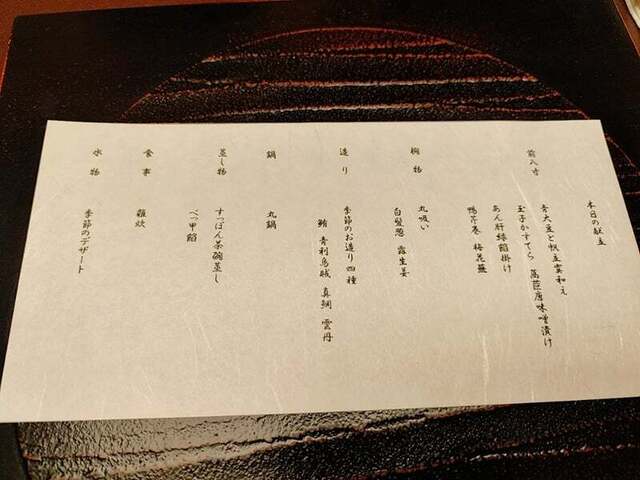 本日の献立
前八寸
青大豆と帆立霙和え
玉子かすてら 萵苣唐味噌漬け
あん肝緑餡掛け
鴨芹巻 梅花羹
椀物
丸吸い
白髪葱 露生姜
造り
季節のお造り四種
鮪 青利烏賊 真鯛 雲丹
鍋
丸鍋
蒸し物
すっぽん茶碗蒸し
べっ甲餡
食事
雑炊
水物
季節のデザート